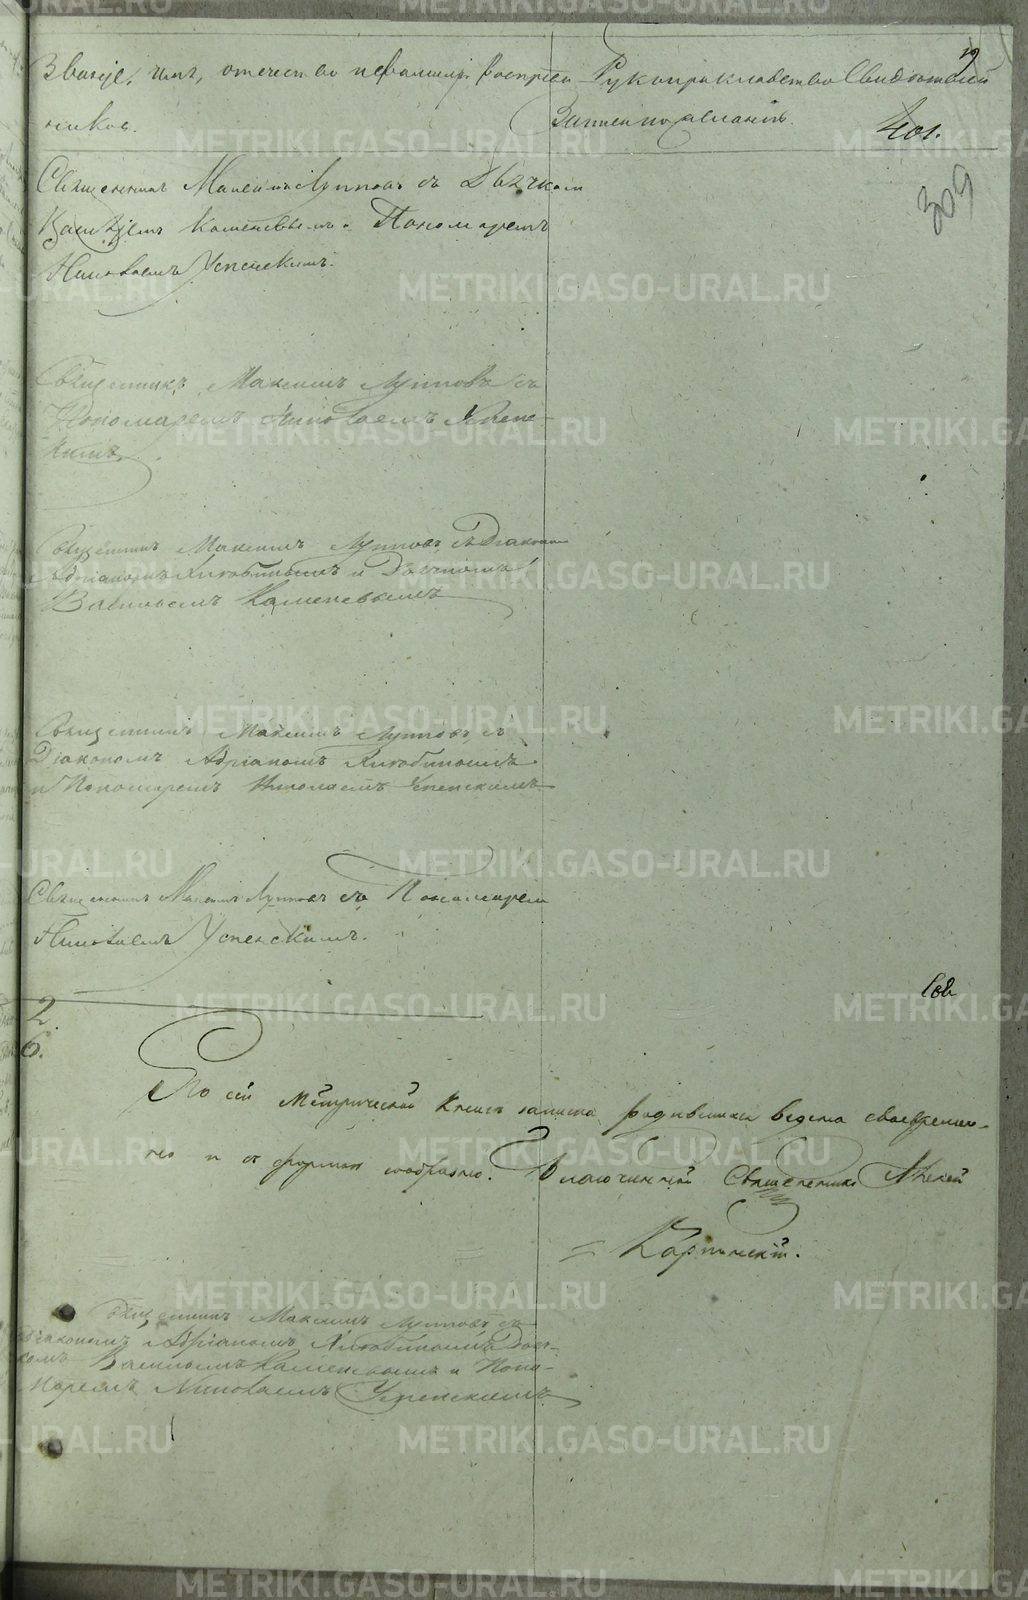 Званiе, имя, отечество и фамилiя воспрiем-
никовъ.
Рукоприкладство Свидѣтелей
Записи по желанiю.
19
401.
309
Священникъ Максимъ Лупповъ съ Дьячкомъ
Василiемъ Каменевымъ и Пономаремъ
Николаемъ Успенскимъ.
Священникъ Максимъ Лупповъ съ
Пономаремъ Николаемъ Успен-
скимъ
Священникъ Максимъ Лупповъ съ Дiакономъ
Адрiаномъ Хлюбинымъ и Дьячкомъ
Васильемъ Каменевымъ
Священникъ Максимъ Лупповъ съ
Дiакономъ Адрiаномъ Хлюбинымъ
и Пономаремъ Николаемъ Успенскимъ
Священникъ Максимъ Лупповъ съ Пономаремъ
Николаемъ Успенскимъ.
2
6.
По сей Метрической Книгѣ записка родившихся ведена своевремен-
но и съ формою сообразно. Благочинный Священникъ Алексѣй
Карпинскiй.
Священникъ Максимъ Лупповъ съ
Дiакономъ Адрiаномъ Хлюбинымъ Дьяч-
комъ Васильемъ Каменевымъ и Поно-
маремъ Николаемъ Успенскимъ
METRIKI.GASO-URAL.RU